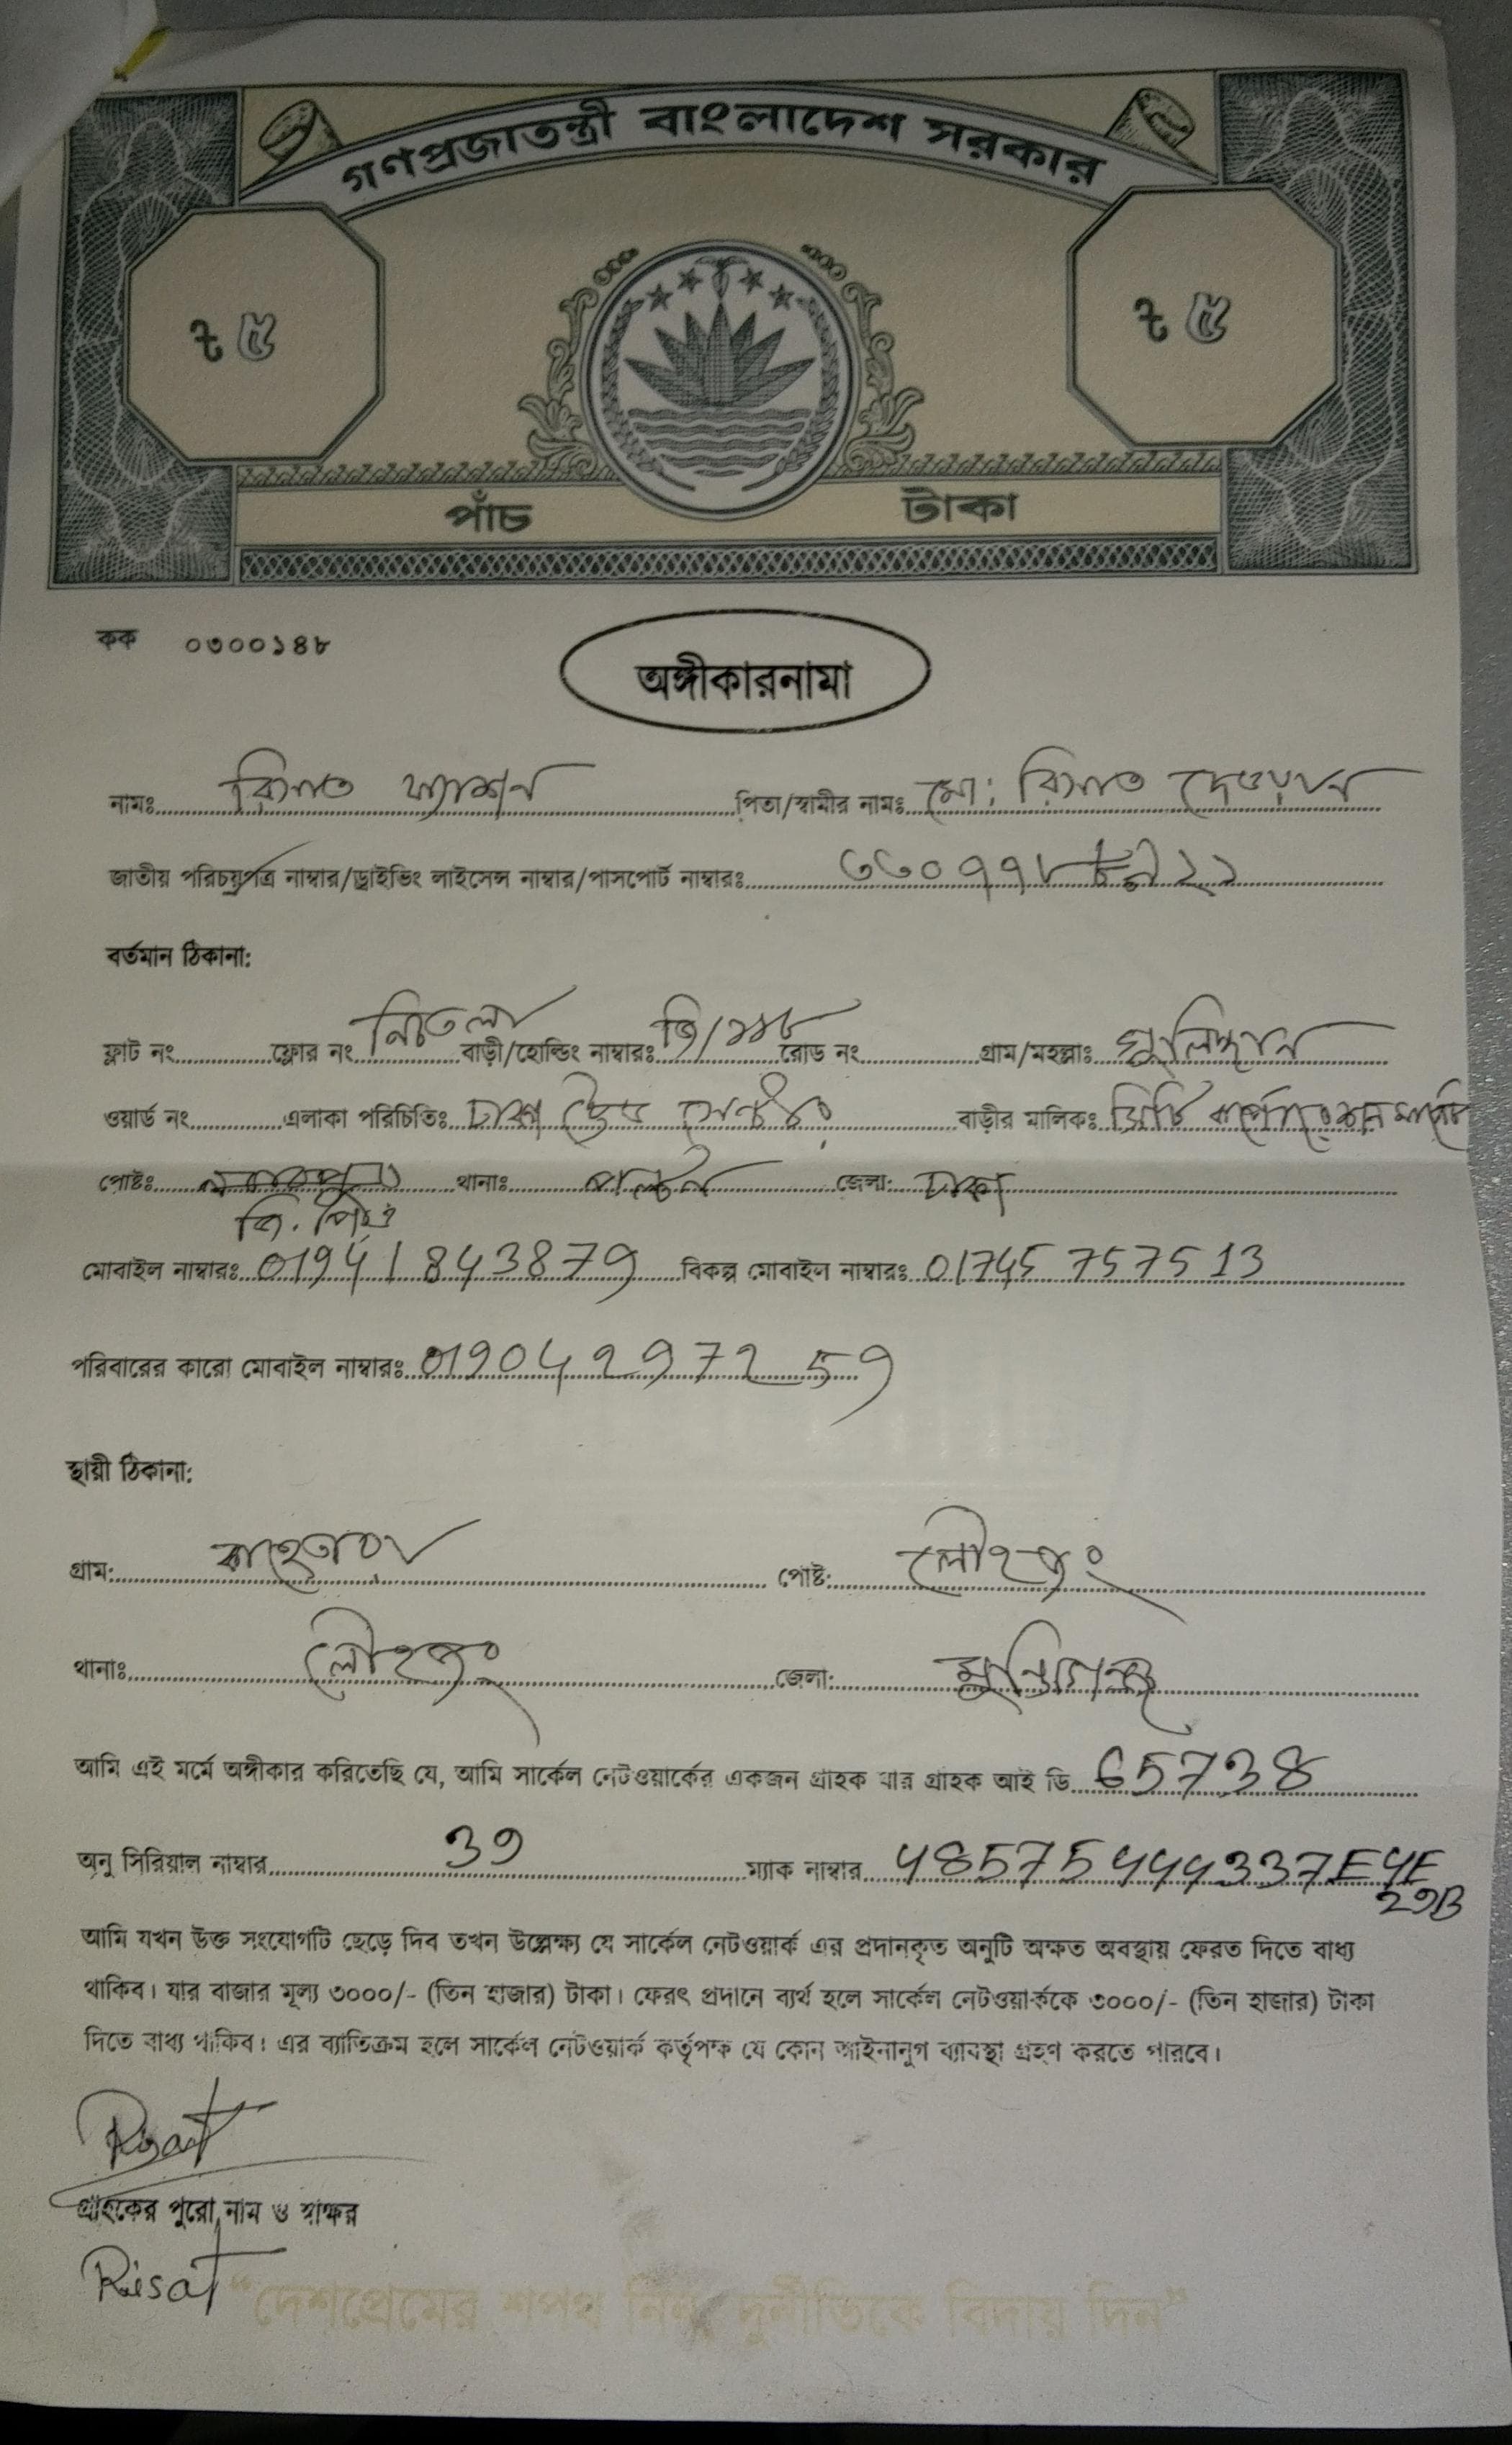 গণপ্রজাতন্ত্রী বাংলাদেশ সরকার
৳ ৫ ৳ ৫
পাঁচ টাকা
কক ০৩০০১৪৮
অঙ্গীকারনামা
নামঃ রিসাত ফ্যাশন পিতা/স্বামীর নামঃ মো: রিসাত দেওয়ান
জাতীয় পরিচয়পত্র নাম্বার/ড্রাইভিং লাইসেন্স নাম্বার/পাসপোর্ট নাম্বারঃ
বর্তমান ঠিকানা:
ফ্লাট নং ফ্লোর নং নিচতলা বাড়ী/হোল্ডিং নাম্বারঃ জি/১৪৮ রোড নং গ্রাম/মহল্লাঃ গুলিস্থান
ওয়ার্ড নং এলাকা পরিচিতিঃ ঢাকা ট্রেড সেন্টার বাড়ীর মালিকঃ সিটি কর্পোরেশন মার্কেট
পোষ্টঃ থানাঃ পল্টন জেলা: ঢাকা
জি. পিও
মোবাইল নাম্বারঃ 01941843879 বিকল্প মোবাইল নাম্বারঃ 01745757513
পরিবারের কারো মোবাইল নাম্বারঃ
স্থায়ী ঠিকানা:
গ্রাম: পোষ্ট: লৌহজং
থানাঃ লৌহজং জেলা: মুন্সিগঞ্জ
আমি এই মর্মে অঙ্গীকার করিতেছি যে, আমি সার্কেল নেটওয়ার্কের একজন গ্রাহক যার গ্রাহক আই ডি 65738
অনু সিরিয়াল নাম্বার 39 ম্যাক নাম্বার 48575444337E4E
29B
আমি যখন উক্ত সংযোগটি ছেড়ে দিব তখন উল্লেক্ষ্য যে সার্কেল নেটওয়ার্ক এর প্রদানকৃত অনুটি অক্ষত অবস্থায় ফেরত দিতে বাধ্য
থাকিব। যার বাজার মূল্য ৩০০০/- (তিন হাজার) টাকা। ফেরৎ প্রদানে ব্যর্থ হলে সার্কেল নেটওয়ার্ককে ৩০০০/- (তিন হাজার) টাকা
দিতে বাধ্য থাকিব। এর ব্যাতিক্রম হলে সার্কেল নেটওয়ার্ক কর্তৃপক্ষ যে কোন আইনানুগ ব্যাবস্থা গ্রহণ করতে পারবে।
Risat
গ্রাহকের পুরো নাম ও স্বাক্ষর
Risat
“দেশপ্রেমের শপথ নিন, দুর্নীতিকে বিদায় দিন”